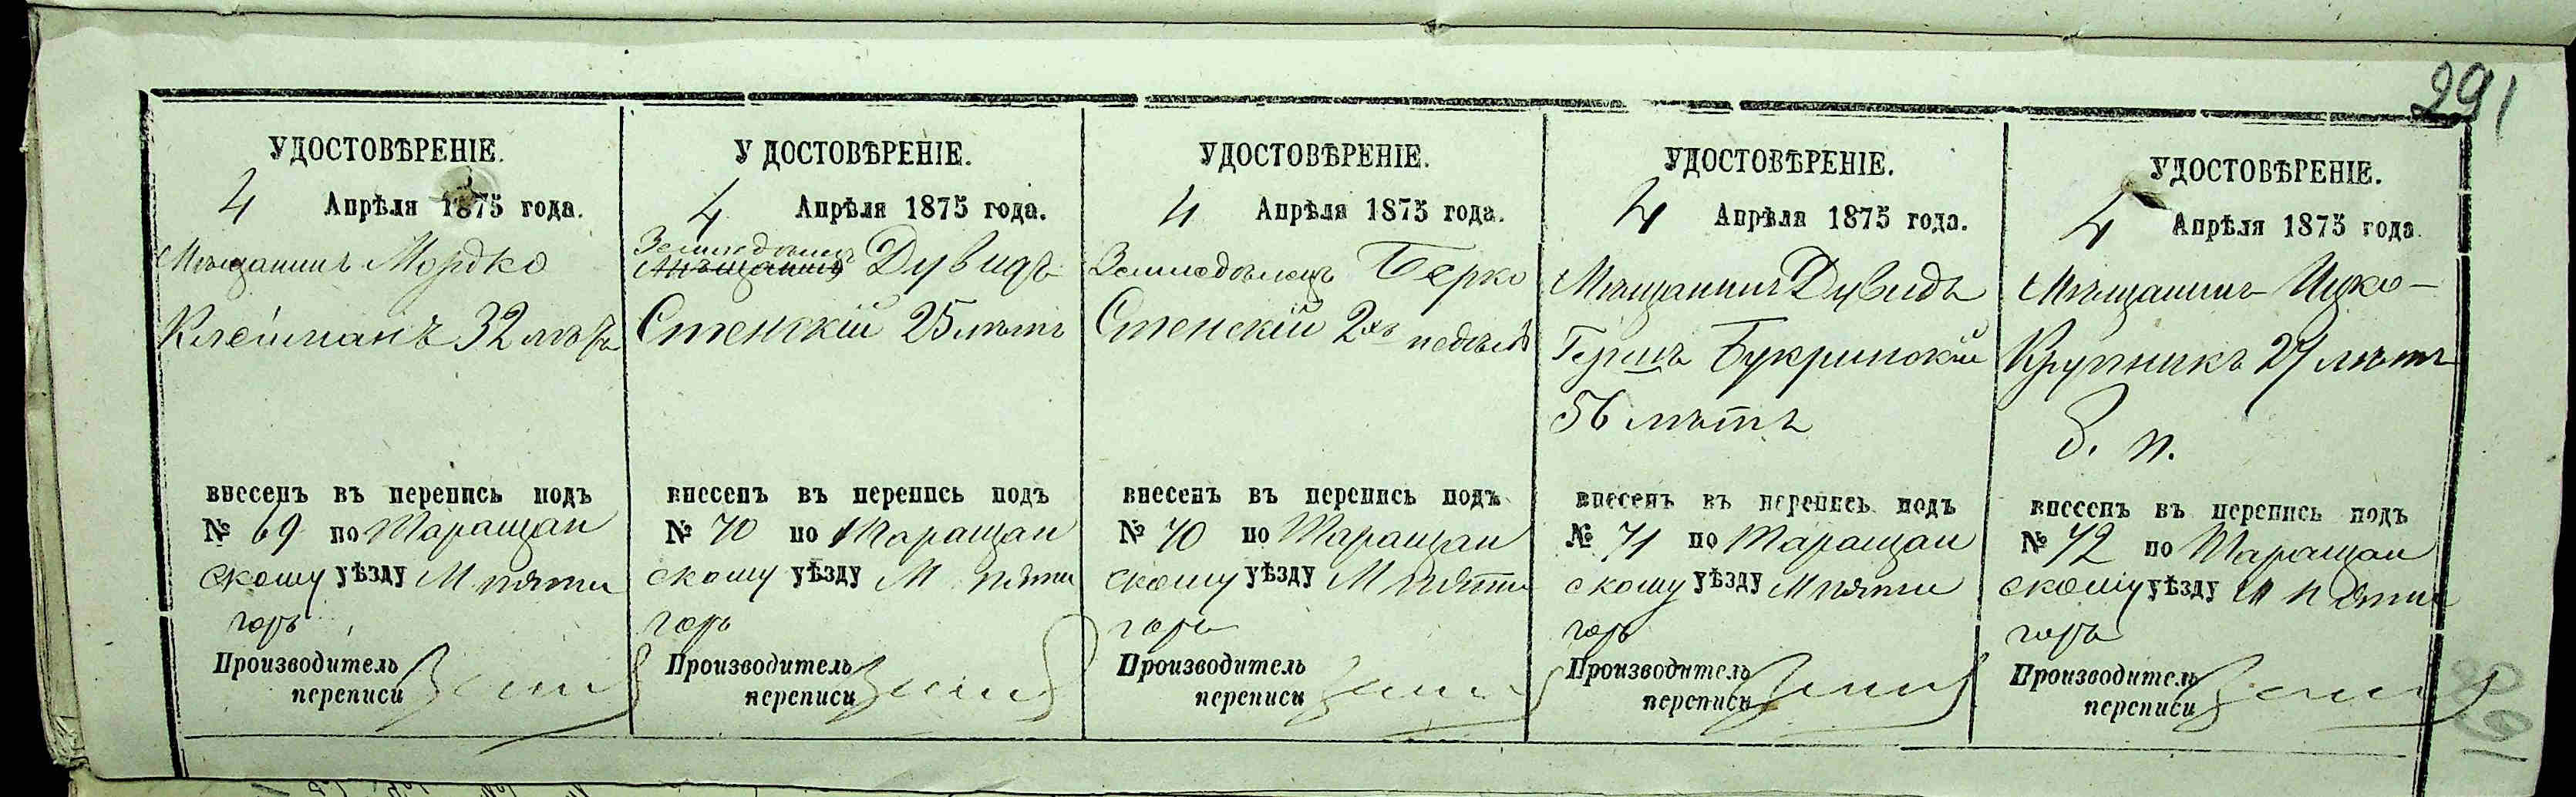 291
УДОСТОВѢРЕНІЕ.
4 Апрѣля 1875 года.
Мѣщанинъ Мордко
Клейманъ 32 лѣтъ
внесенъ въ перепись подъ
№ 69 по Таращан
скому уѣзду М пяти
горъ
Производитель
переписи
УДОСТОВѢРЕНІЕ.
4 Апрѣля 1875 года.
Земледѣлецъ
Мѣщанинъ Дувидъ
Стенскій 25 лѣтъ
внесенъ въ перепись подъ
№ 70 по Таращан
скому уѣзду М пяти
горъ
Производитель
переписи
УДОСТОВѢРЕНІЕ.
4 Апрѣля 1875 года.
Земледѣлецъ Берко
Стенскій 2хъ недѣль
внесенъ въ перепись подъ
№ 70 по Таращан
скому уѣзду М пяти
горъ
Производитель
переписи
УДОСТОВѢРЕНІЕ.
4 Апрѣля 1875 года.
Мѣщанинъ Дувидъ
Гершъ Букринскій
56 лѣтъ
внесенъ въ перепись подъ
№ 71 по Таращан
скому уѣзду М пяти
горъ
Производитель
переписи
УДОСТОВѢРЕНІЕ.
4 Апрѣля 1875 года.
Мѣщанинъ Ицко
Крупникъ 27 лѣтъ
б. п.
внесенъ въ перепись подъ
№ 72 по Таращан
скому уѣзду М пяти
горъ
Производитель
переписи